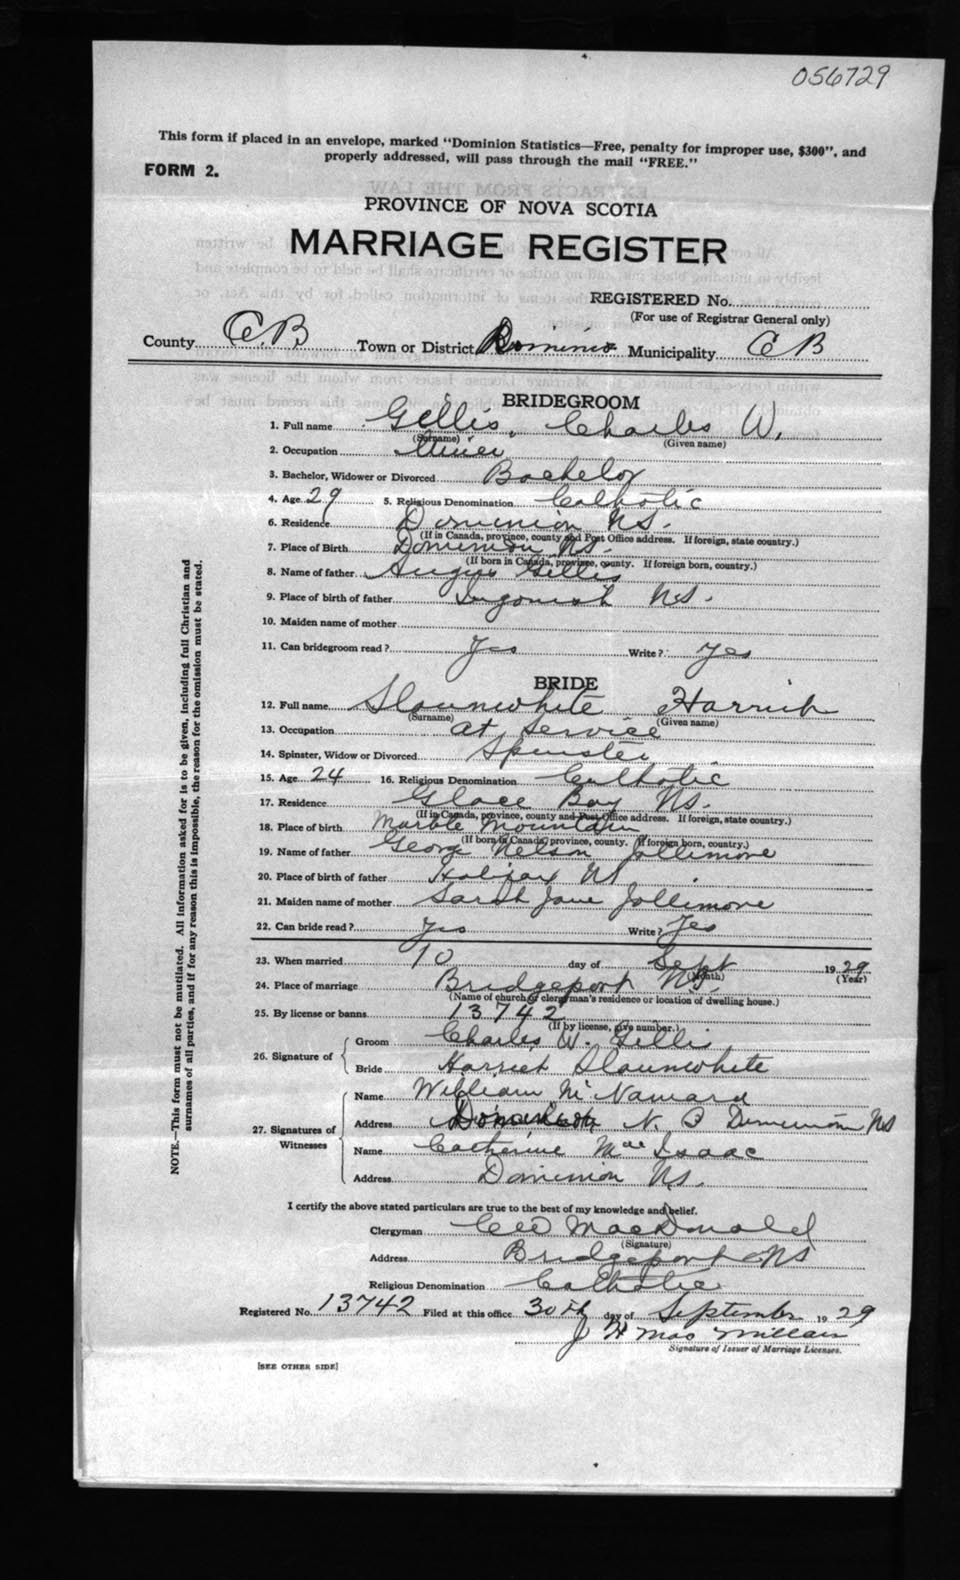 056729
This form if placed in an envelope, marked "Dominion Statistics—Free, penalty for improper use, $300", and
properly addressed, will pass through the mail "FREE."
FORM 2.
PROVINCE OF NOVA SCOTIA
MARRIAGE REGISTER
REGISTERED No.
(For use of Registrar General only)
County C.B Town or District Dominion Municipality C B
BRIDEGROOM
1. Full name Gillis, Charles W.
(Surname) (Given name)
2. Occupation Miner
3. Bachelor, Widower or Divorced Bachelor
4. Age 29 5. Religious Denomination Catholic
6. Residence Dominion NS.
(If in Canada, province, county and Post Office address. If foreign, state country.)
7. Place of Birth Dominion NS.
(If born in Canada, province, county. If foreign born, country.)
8. Name of father Angus Gillis
9. Place of birth of father Ingonish NS.
10. Maiden name of mother
11. Can bridegroom read? Yes Write? Yes
BRIDE
12. Full name Slaunwhite Harriet
(Surname) (Given name)
13. Occupation at Service
14. Spinster, Widow or Divorced Spinster
15. Age 24 16. Religious Denomination Catholic
17. Residence Glace Bay NS.
(If in Canada, province, county and Post Office address. If foreign, state country.)
18. Place of birth Marble Mountain
(If born in Canada, province, county. If foreign born, country.)
19. Name of father George Nelson Jollimore
20. Place of birth of father Halifax NS
21. Maiden name of mother Sarah Jane Jollimore
22. Can bride read? Yes Write? Yes
23. When married 10 day of Sept 1929
(Month) (Year)
24. Place of marriage Bridgeport NS.
(Name of church, clergyman's residence or location of dwelling house.)
25. By license or banns 13742
(If by license, give number.)
26. Signature of Groom Charles W. Gillis
Bride Harriet Slaunwhite
27. Signatures of Witnesses Name William McNamara
Address N. B Dominion NS
Name Catherine MacIsaac
Address Dominion NS.
I certify the above stated particulars are true to the best of my knowledge and belief.
Clergyman MacDonald
(Signature)
Address Bridgeport NS
Religious Denomination Catholic
Registered No. 13742 Filed at this office 30th day of September 1929
J H MacMillan
Signature of Issuer of Marriage Licenses.
[SEE OTHER SIDE]
NOTE.—This form must not be mutilated. All information asked for is to be given, including full Christian and
surnames of all parties, and if for any reason this is impossible, the reason for the omission must be stated.